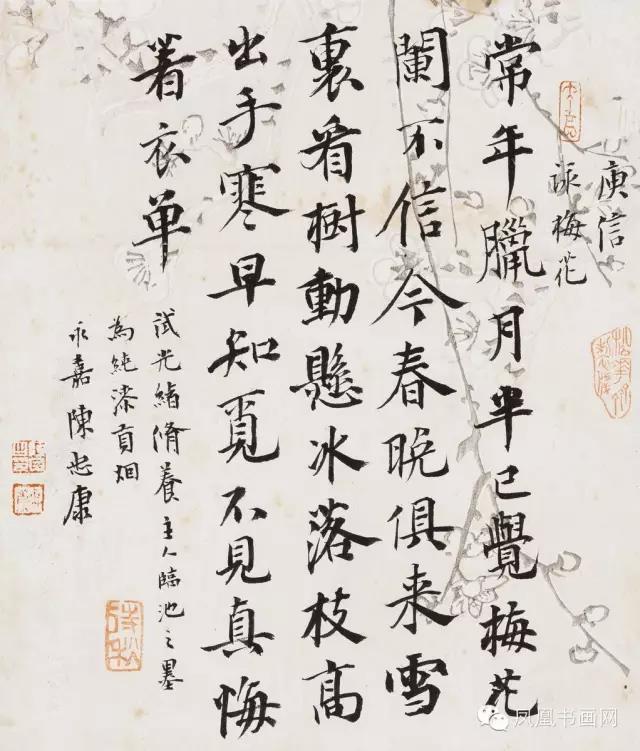 庾信
詠梅花
常年臘月半已覺梅花
闌不信今春晚俱来雪
裏看樹動懸冰落枝高
出手寒早知覓不見真悔
着衣单
試光緒脩養主人臨池之墨
為純漆貢烟
永嘉陳忠康
凤凰书画网